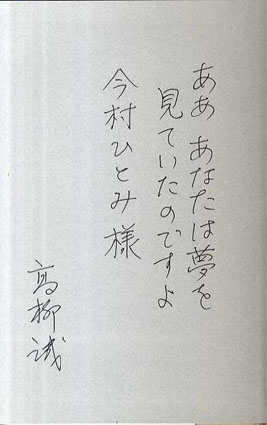 ああ あなたは夢を
見ていたのですよ
今村ひとみ様
高柳誠